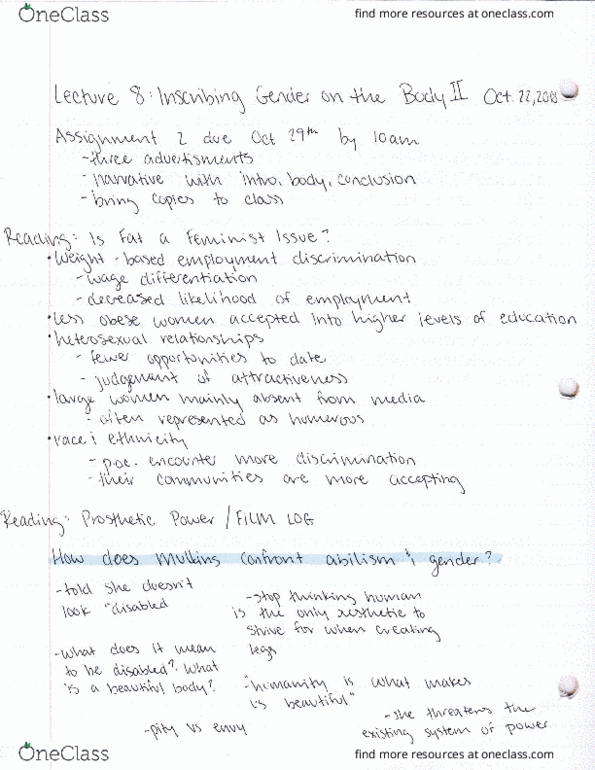 OneClass
find more resources at oneclass.com
Lecture 8: Inscribing Gender on the Body II Oct. 22, 2018
Assignment 2 due Oct 29th by 10am
-three advertisments
-narrative with intro, body, conclusion
-bring copies to class
Reading: Is Fat a Feminist Issue?
•Weight-based employment discrimination
-wage differentiation
-decreased likelihood of employment
•less obese women accepted into higher levels of education
•heterosexual relationships
-fewer opportunities to date
-judgement of attractiveness
•large women mainly absent from media
-often represented as humorous
•race & ethnicity
-poc. encounter more discrimination
-their communities are more accepting
Reading: Prosthetic Power / FILM LOG
How does Mullins confront abilism & gender?
-told she doesn't
look "disabled
-what does it mean
to be disabled? What
is a beautiful body?
-pity vs envy
-stop thinking human
is the only aesthetic to
strive for when creating
legs
-"humanity is what makes
us beautiful"
-she threatens the
existing system of power
OneClass
find more resources at oneclass.com